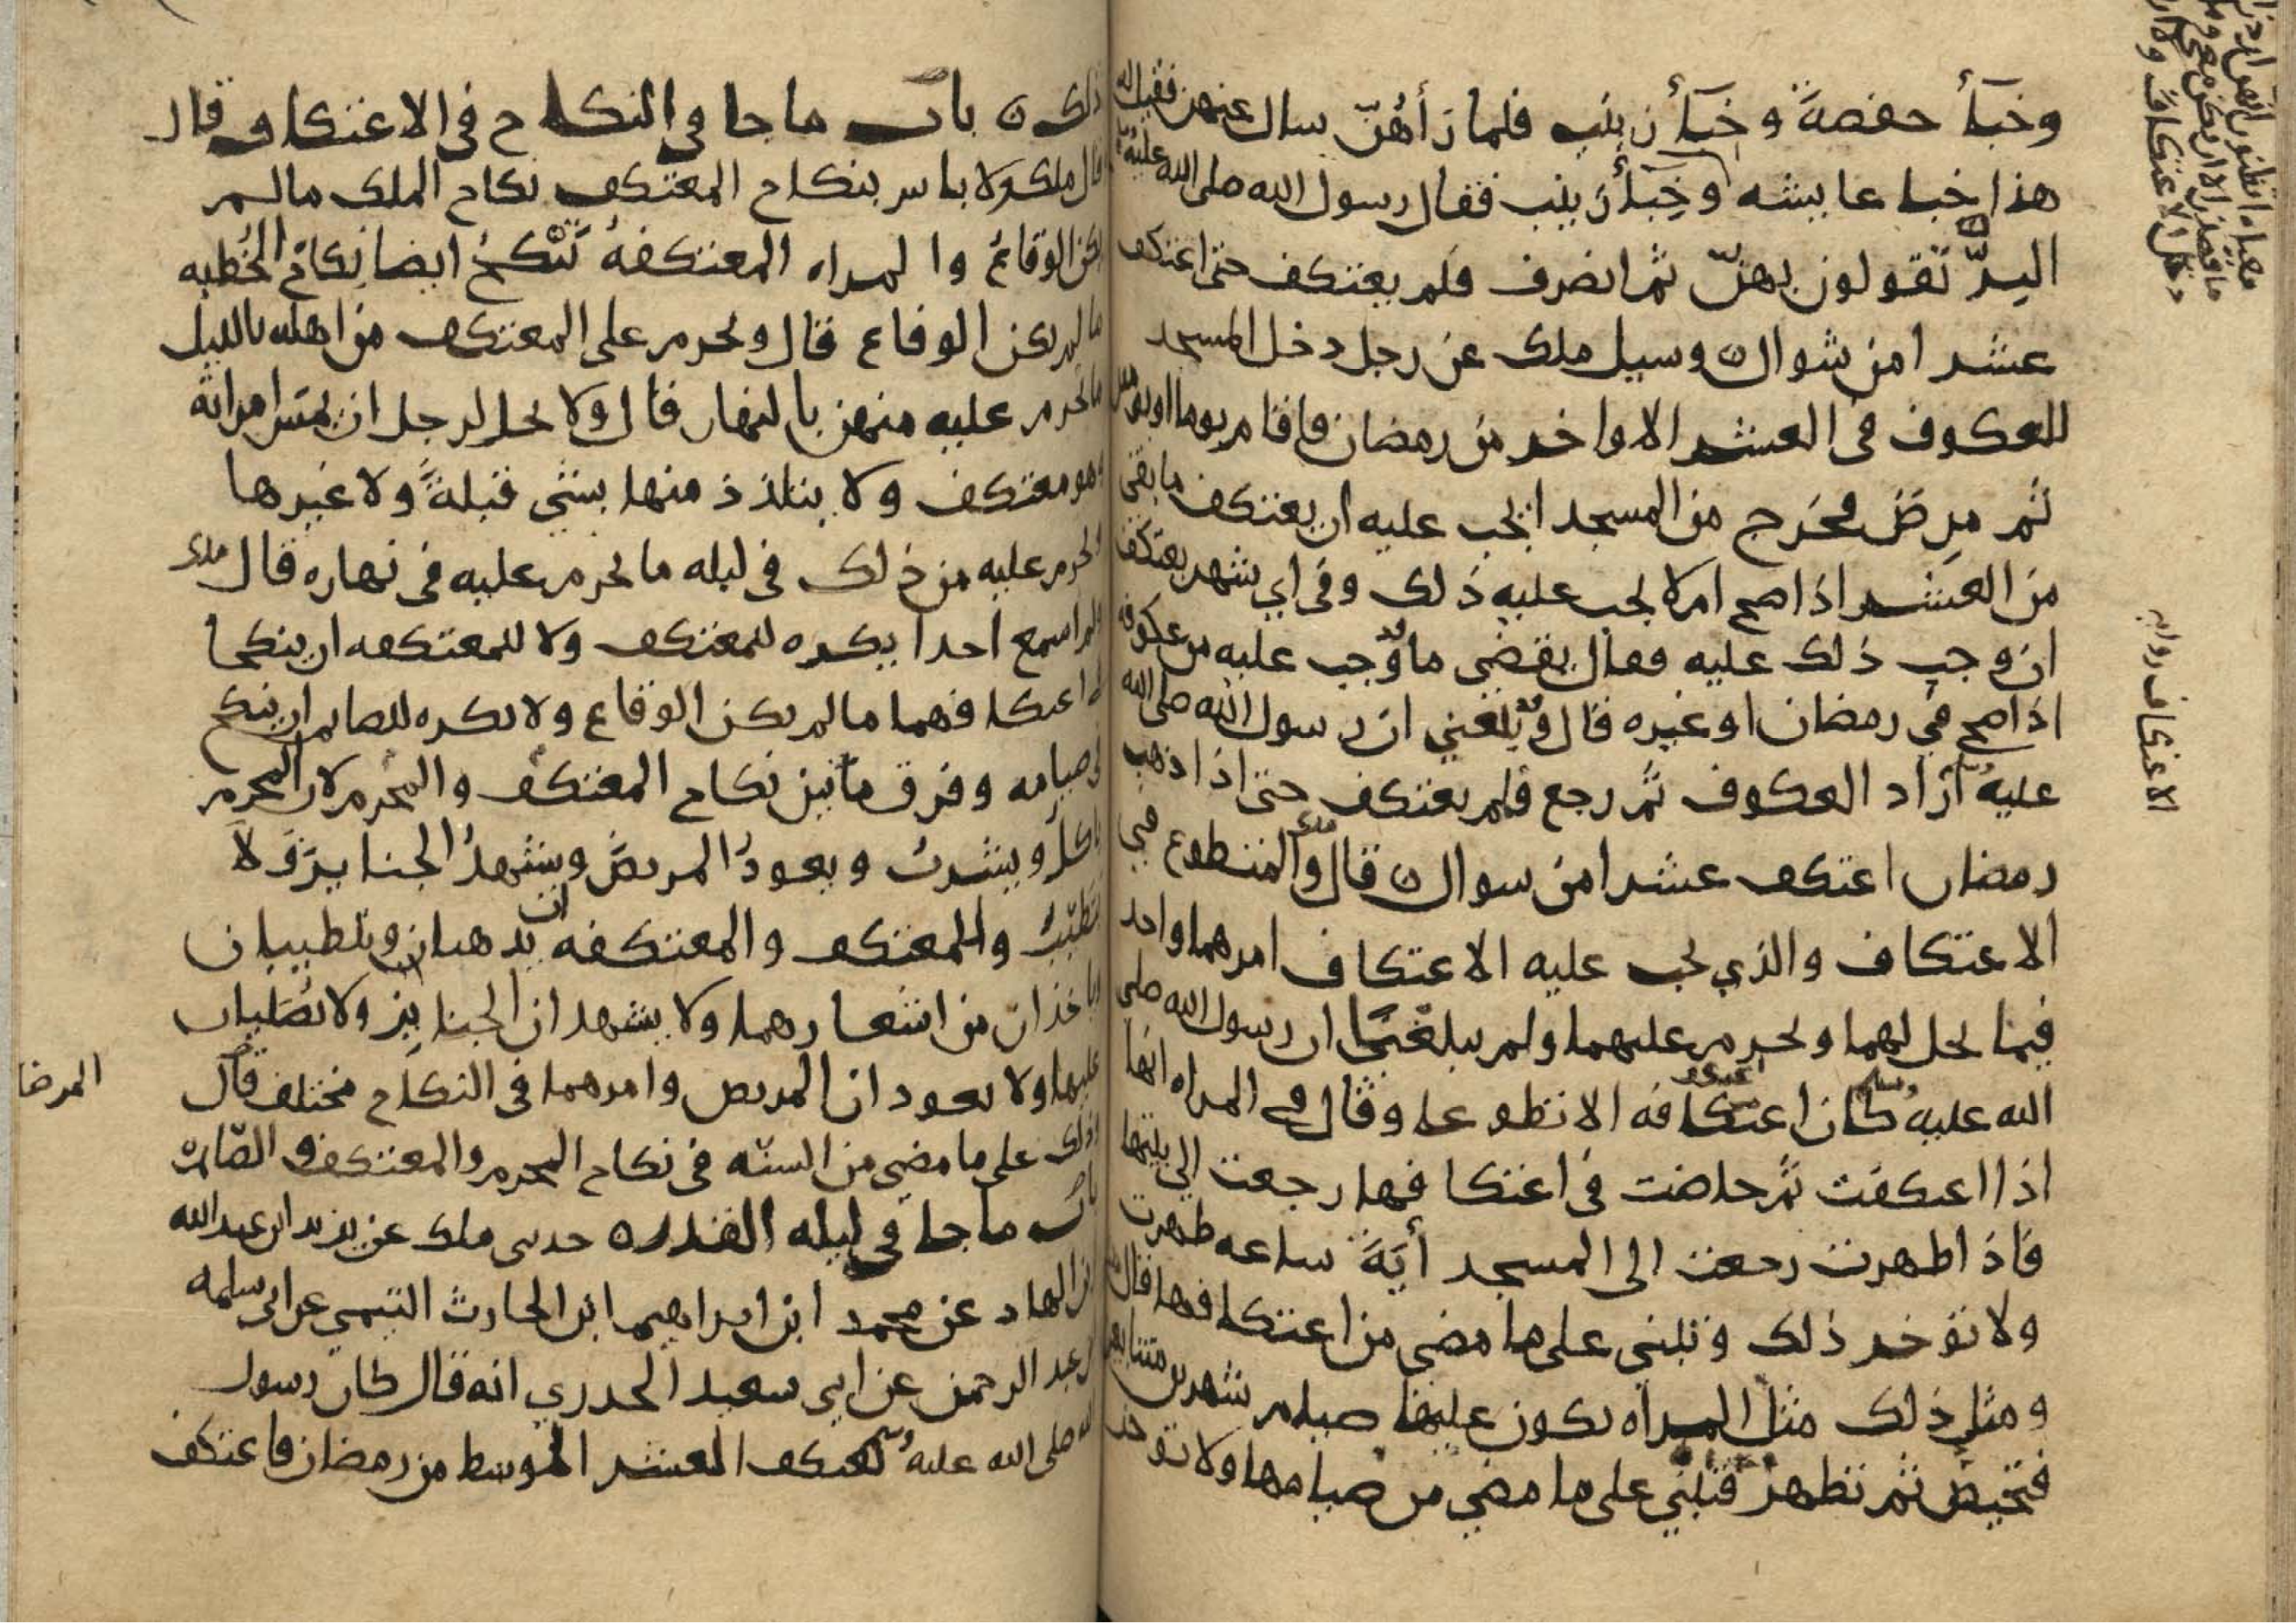 وخبأ حفصة وخبأ زينب فلما رأهن سال عنهن فقيل له
هذا خبا عايشه وخبأ زينب فقال رسول الله صلى الله عليه
البر تقولون بهن ثم انصرف فلم يعتكف حتى اعتكف
عشرا من شوال وسيل ملك عن رجل دخل المسجد
للعكوف في العشر الاواخر من رمضان فاقام يوما او يومين
ثم مرض فخرج من المسجد ايجب عليه ان يعتكف ما بقي
من العشر اذا صح ام لا يجب عليه ذلك وفي اي شهر يعتكف
ان وجب ذلك عليه فقال يقضي ما وجب عليه من عكوف
اذا صح في رمضان او غيره قال وقد بلغني ان رسول الله صلى الله
عليه اراد العكوف ثم رجع فلم يعتكف حتى اذا ذهب
رمضان اعتكف عشرا من سوال قال ملك والمتطوع في
الاعتكاف والذي يجب عليه الاعتكاف امرهما واحد
فيما يحل لهما ويحرم عليهما ولم يبلغني ان رسول الله صلى
الله عليه وسلم كان اعتكافه الا تطوعا وقال في المراه انها
اذا اعتكفت ثم حاضت في اعتكافها رجعت الى بيتها
فاذا طهرت رجعت الى المسجد أية ساعه طهرت
ولا توخر ذلك وتبني على ما مضى من اعتكافها قال
ومثل ذلك مثل المراه يكون عليها صيام شهرين متتابعين
فتحيض ثم تطهر فتبني على ما مضى من صيامها ولا توخر
الاعتكاف روايه
ذلك باب ما جا في النكاح في الاعتكاف قال
قال ملك ولا باس بنكاح المعتكف نكاح الملك ما لم
يكن الوقاع والمراه المعتكفة تنكح ايضا نكاح الخطبه
ما لم يكن الوقاع قال ويحرم على المعتكف من اهله بالليل
ما يحرم عليه منهن بالنهار قال ولا يحل لرجل ان يمس امراته
وهو معتكف ولا يتلذذ منها بشي قبلة ولا غيرها
ويحرم عليه من ذلك في ليله ما يحرم عليه في نهاره قال ملك
ولم اسمع احدا يكره للمعتكف ولا للمعتكفه ان ينكحا
في اعتكافهما ما لم يكن الوقاع ولا يكره للصايم ان ينكح
في صيامه وفرق ما بين نكاح المعتكف والمحرم لان المحرم
ياكل ويشرب ويعود المريض ويشهد الجنايز ولا
يتطيب والمعتكف والمعتكفه يدهنان ويتطيبان
وياخذان من اشعارهما ولا يشهدان الجنايز ولا يصليان
عليها ولا يعودان المريض وامرهما في النكاح مختلف قال
المرضا
وذلك على ما مضى من السنه في نكاح المحرم والمعتكف والصايم
باب ما جا في ليله القدر حدثني ملك عن يزيد ابن عبد الله
ابن الهاد عن محمد ابن ابراهيم ابن الحارث التيمي عن ابي سلمه
ابن عبد الرحمن عن ابي سعيد الخدري انه قال كان رسول
الله صلى الله عليه وسلم يعتكف العشر الوسط من رمضان فاعتكف